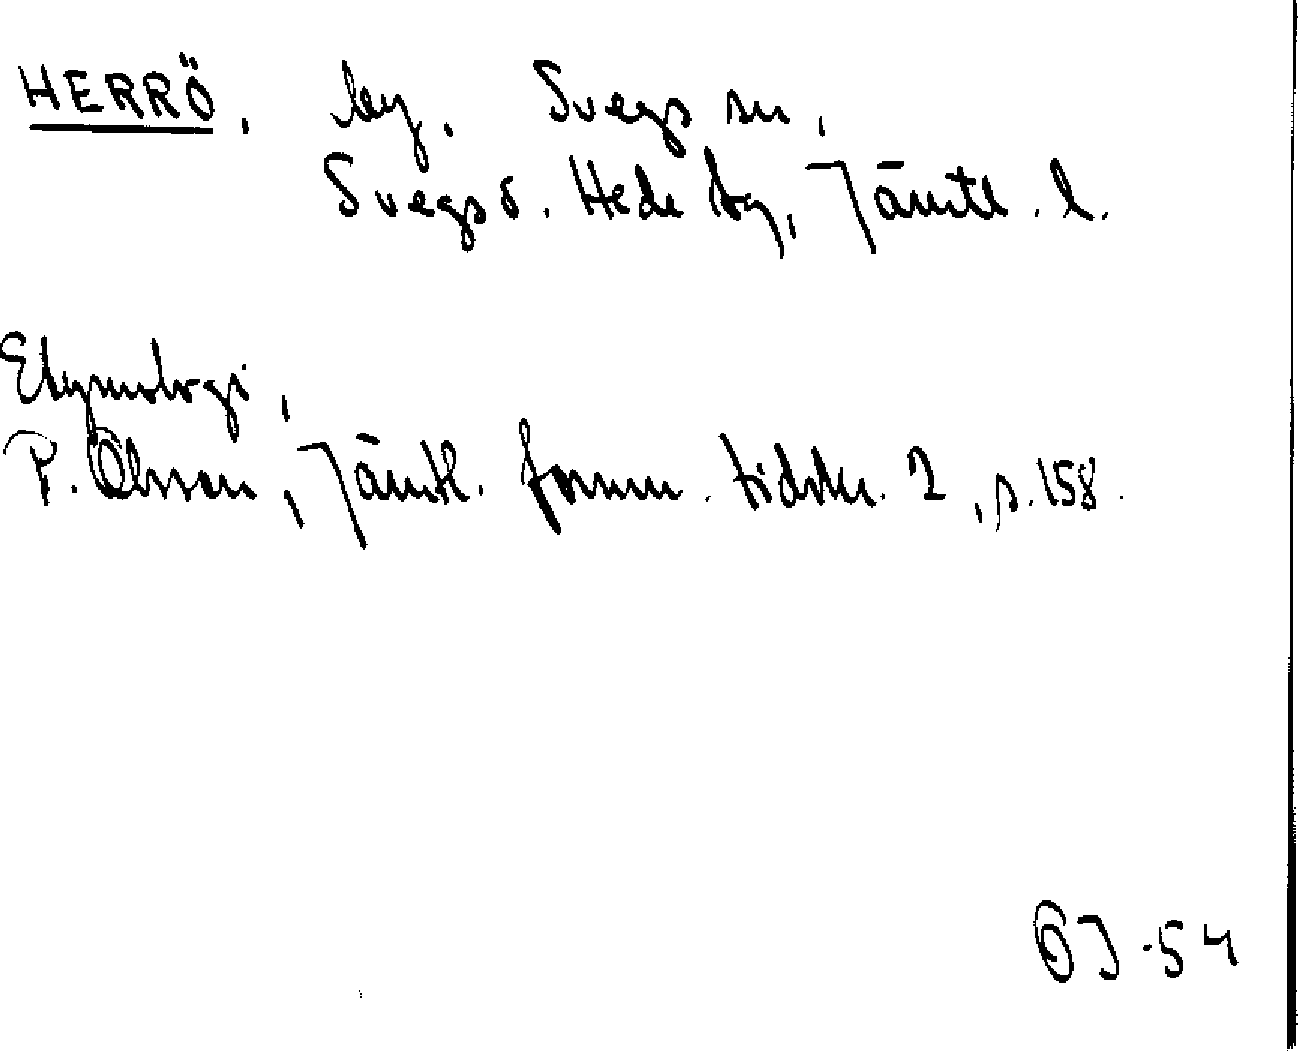 HERRÖ, by. Svegs sn,
Svegs o. Hede tg, Jämtl. l.
Etymologi,
P. Olsson, Jämtl. fornm. tidskr. 2, s. 158.
OJ -54